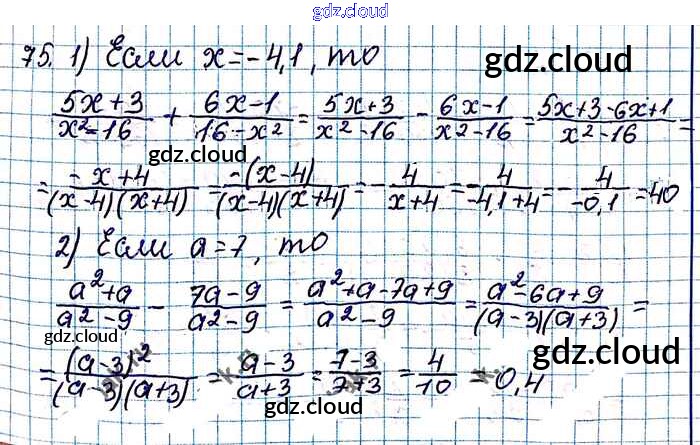 gdz.cloud
gdz.cloud
75. 1) Если x = -4,1, то
gdz.cloud
(5x+3)/(x²-16) + (6x-1)/(16-x²) = (5x+3)/(x²-16) - (6x-1)/(x²-16) = (5x+3-6x+1)/(x²-16) =
gdz.cloud
= (-x+4)/((x-4)(x+4)) = (-(x-4))/((x-4)(x+4)) = -4/(x+4) = -4/(-4,1+4) = -4/(-0,1) = 40
2) Если a = 7, то
(a²+a)/(a²-9) - (7a-9)/(a²-9) = (a²+a-7a+9)/(a²-9) = (a²-6a+9)/((a-3)(a+3)) =
gdz.cloud
gdz.cloud
= (a-3)²/((a-3)(a+3)) = (a-3)/(a+3) = (7-3)/(7+3) = 4/10 = 0,4
gdz.cloud